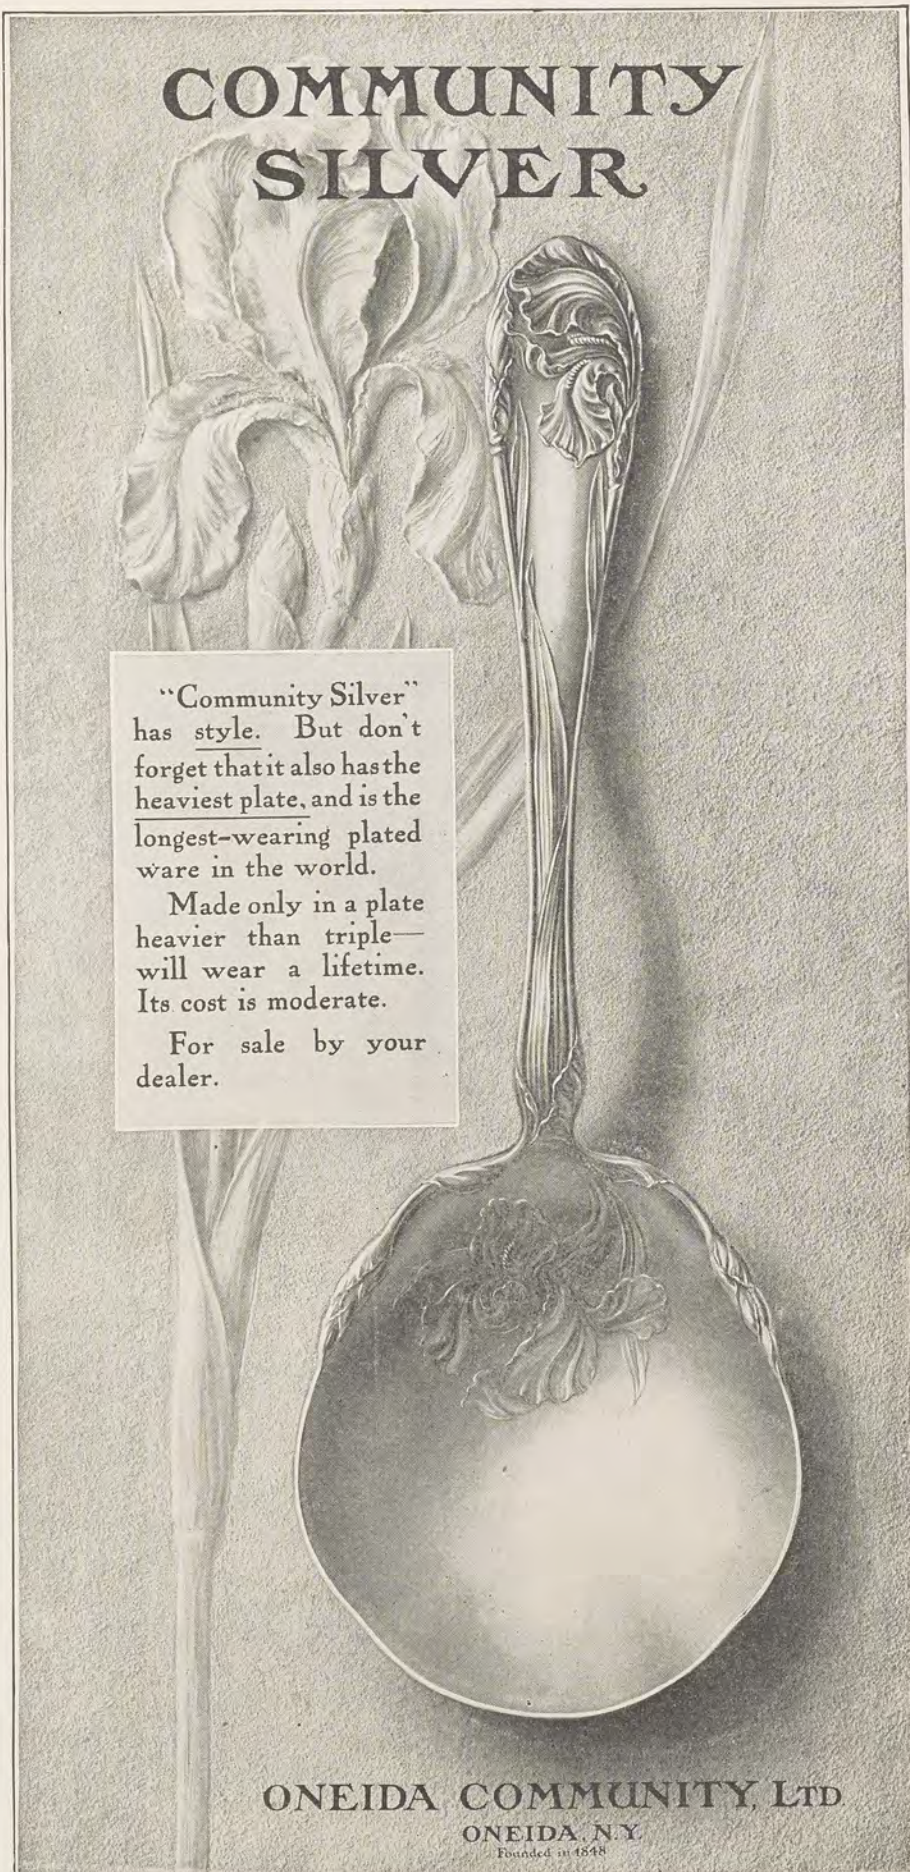 COMMUNITY
SILVER
"Community Silver"
has style. But don't
forget that it also has the
heaviest plate, and is the
longest-wearing plated
ware in the world.
Made only in a plate
heavier than triple—
will wear a lifetime.
Its cost is moderate.
For sale by your
dealer.
ONEIDA COMMUNITY, LTD
ONEIDA, N.Y.
Founded in 1848